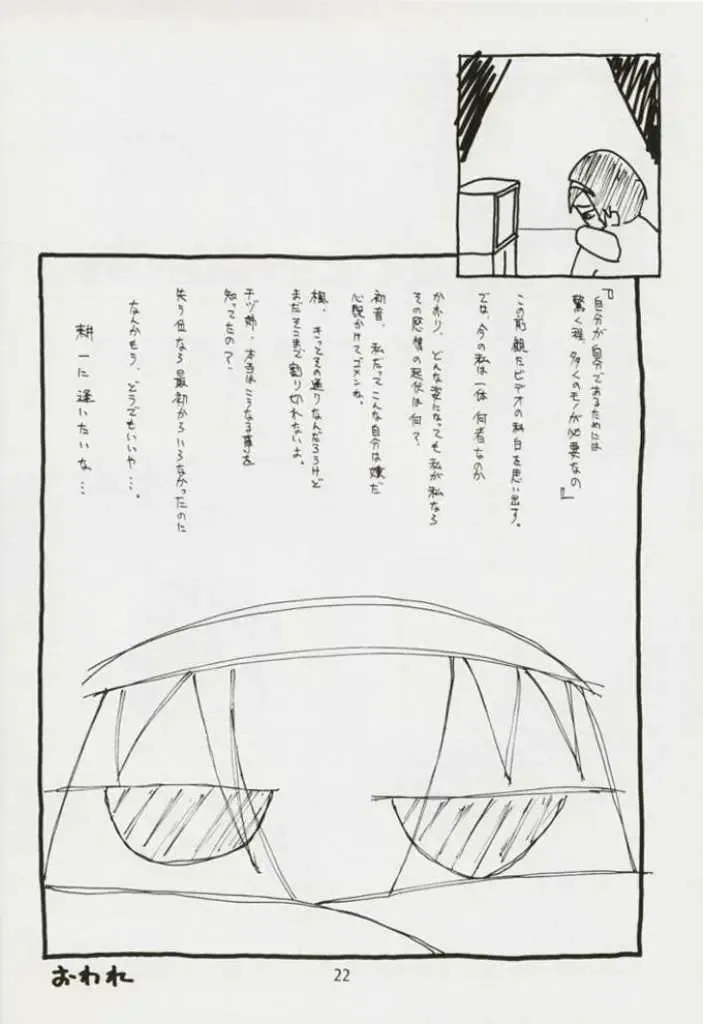 『自分が自分であるためには
驚く程、多くのモノが必要なの』
この前観たビデオの科白を思い出す。
では、今の私は一体何者なのか
かおり、どんな姿になっても私が私なら
その感情の起伏は何?
初音、私だってこんな自分は嫌だ
心配かけてゴメンね。
楓、きっとその通りなんだろうけど
まだそこまで割り切れないよ。
チヅ姉、本当はこうなる事を
知ってたの?、
失う位なら最初からいらなかったのに
なんかもう、どうでもいいや…。
耕一に逢いたいな…
おわれ
22